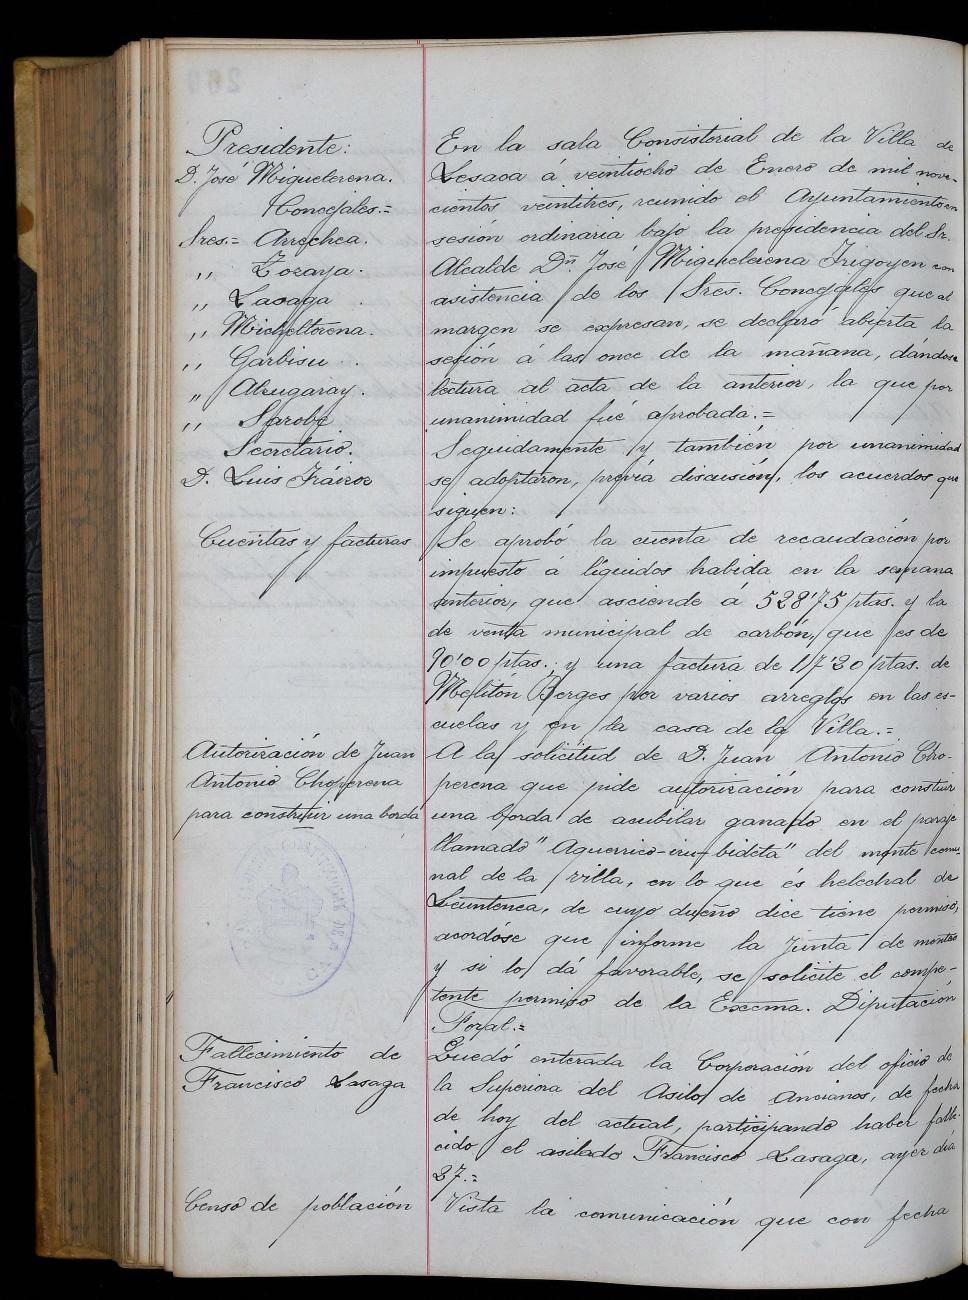 Presidente:
D. José Miquelerena.
Concejales.=
Sres.= Arrechea.
,, Zozaya.
,, Lasaga.
,, Micheltorena.
,, Garbisu.
,, Alzugaray.
,, Sarobe
Secretario.
D. Luis Iráizoz
En la sala Consistorial de la Villa de
Lesaca á veintiocho de Enero de mil nove-
cientos veintitres, reunido el Ayuntamiento en
sesion ordinaria bajo la presidencia del Sr.
Alcalde Dn. José Miquelerena Irigoyen con
asistencia de los Sres. Concejales que al
margen se expresan, se declaró abierta la
sesión á las once de la mañana, dándose
lectura al acta de la anterior, la que por
unanimidad fué aprobada.=
Seguidamente y también por unanimidad
se adoptaron, prévia discusión, los acuerdos que
siguen:
Cuentas y facturas
Se aprobó la cuenta de recaudación por
impuesto á líquidos habida en la semana
anterior, que asciende á 528'75 ptas. y la
de venta municipal de carbón, que es de
90'00 ptas.; y una factura de 17'30 ptas. de
Melitón Berges por varios arreglos en las es-
cuelas y en la casa de la Villa.=
Autorización de Juan
Antonio Choperena
para construir una borda
A la solicitud de D. Juan Antonio Cho-
perena que pide autorización para constuir
una borda de acubilar ganado en el paraje
llamado "Aguerrico-iru-bideta" del monte comu-
nal de la villa, en lo que és helechal de
de cuyo dueño dice tiene permiso,
acordóse que informe la Junta de montes
y si lo dá favorable, se solicite el compe-
tente permiso de la Excma. Diputación
Foral.=
Fallecimiento de
Francisco Lasaga
Quedó enterada la Corporación del oficio de
la Superiora del Asilo de Ancianos, de fecha
de hoy del actual, participando haber falle-
cido el asilado Francisco Lasaga, ayer día
27.=
Censo de población
Vista la comunicación que con fecha